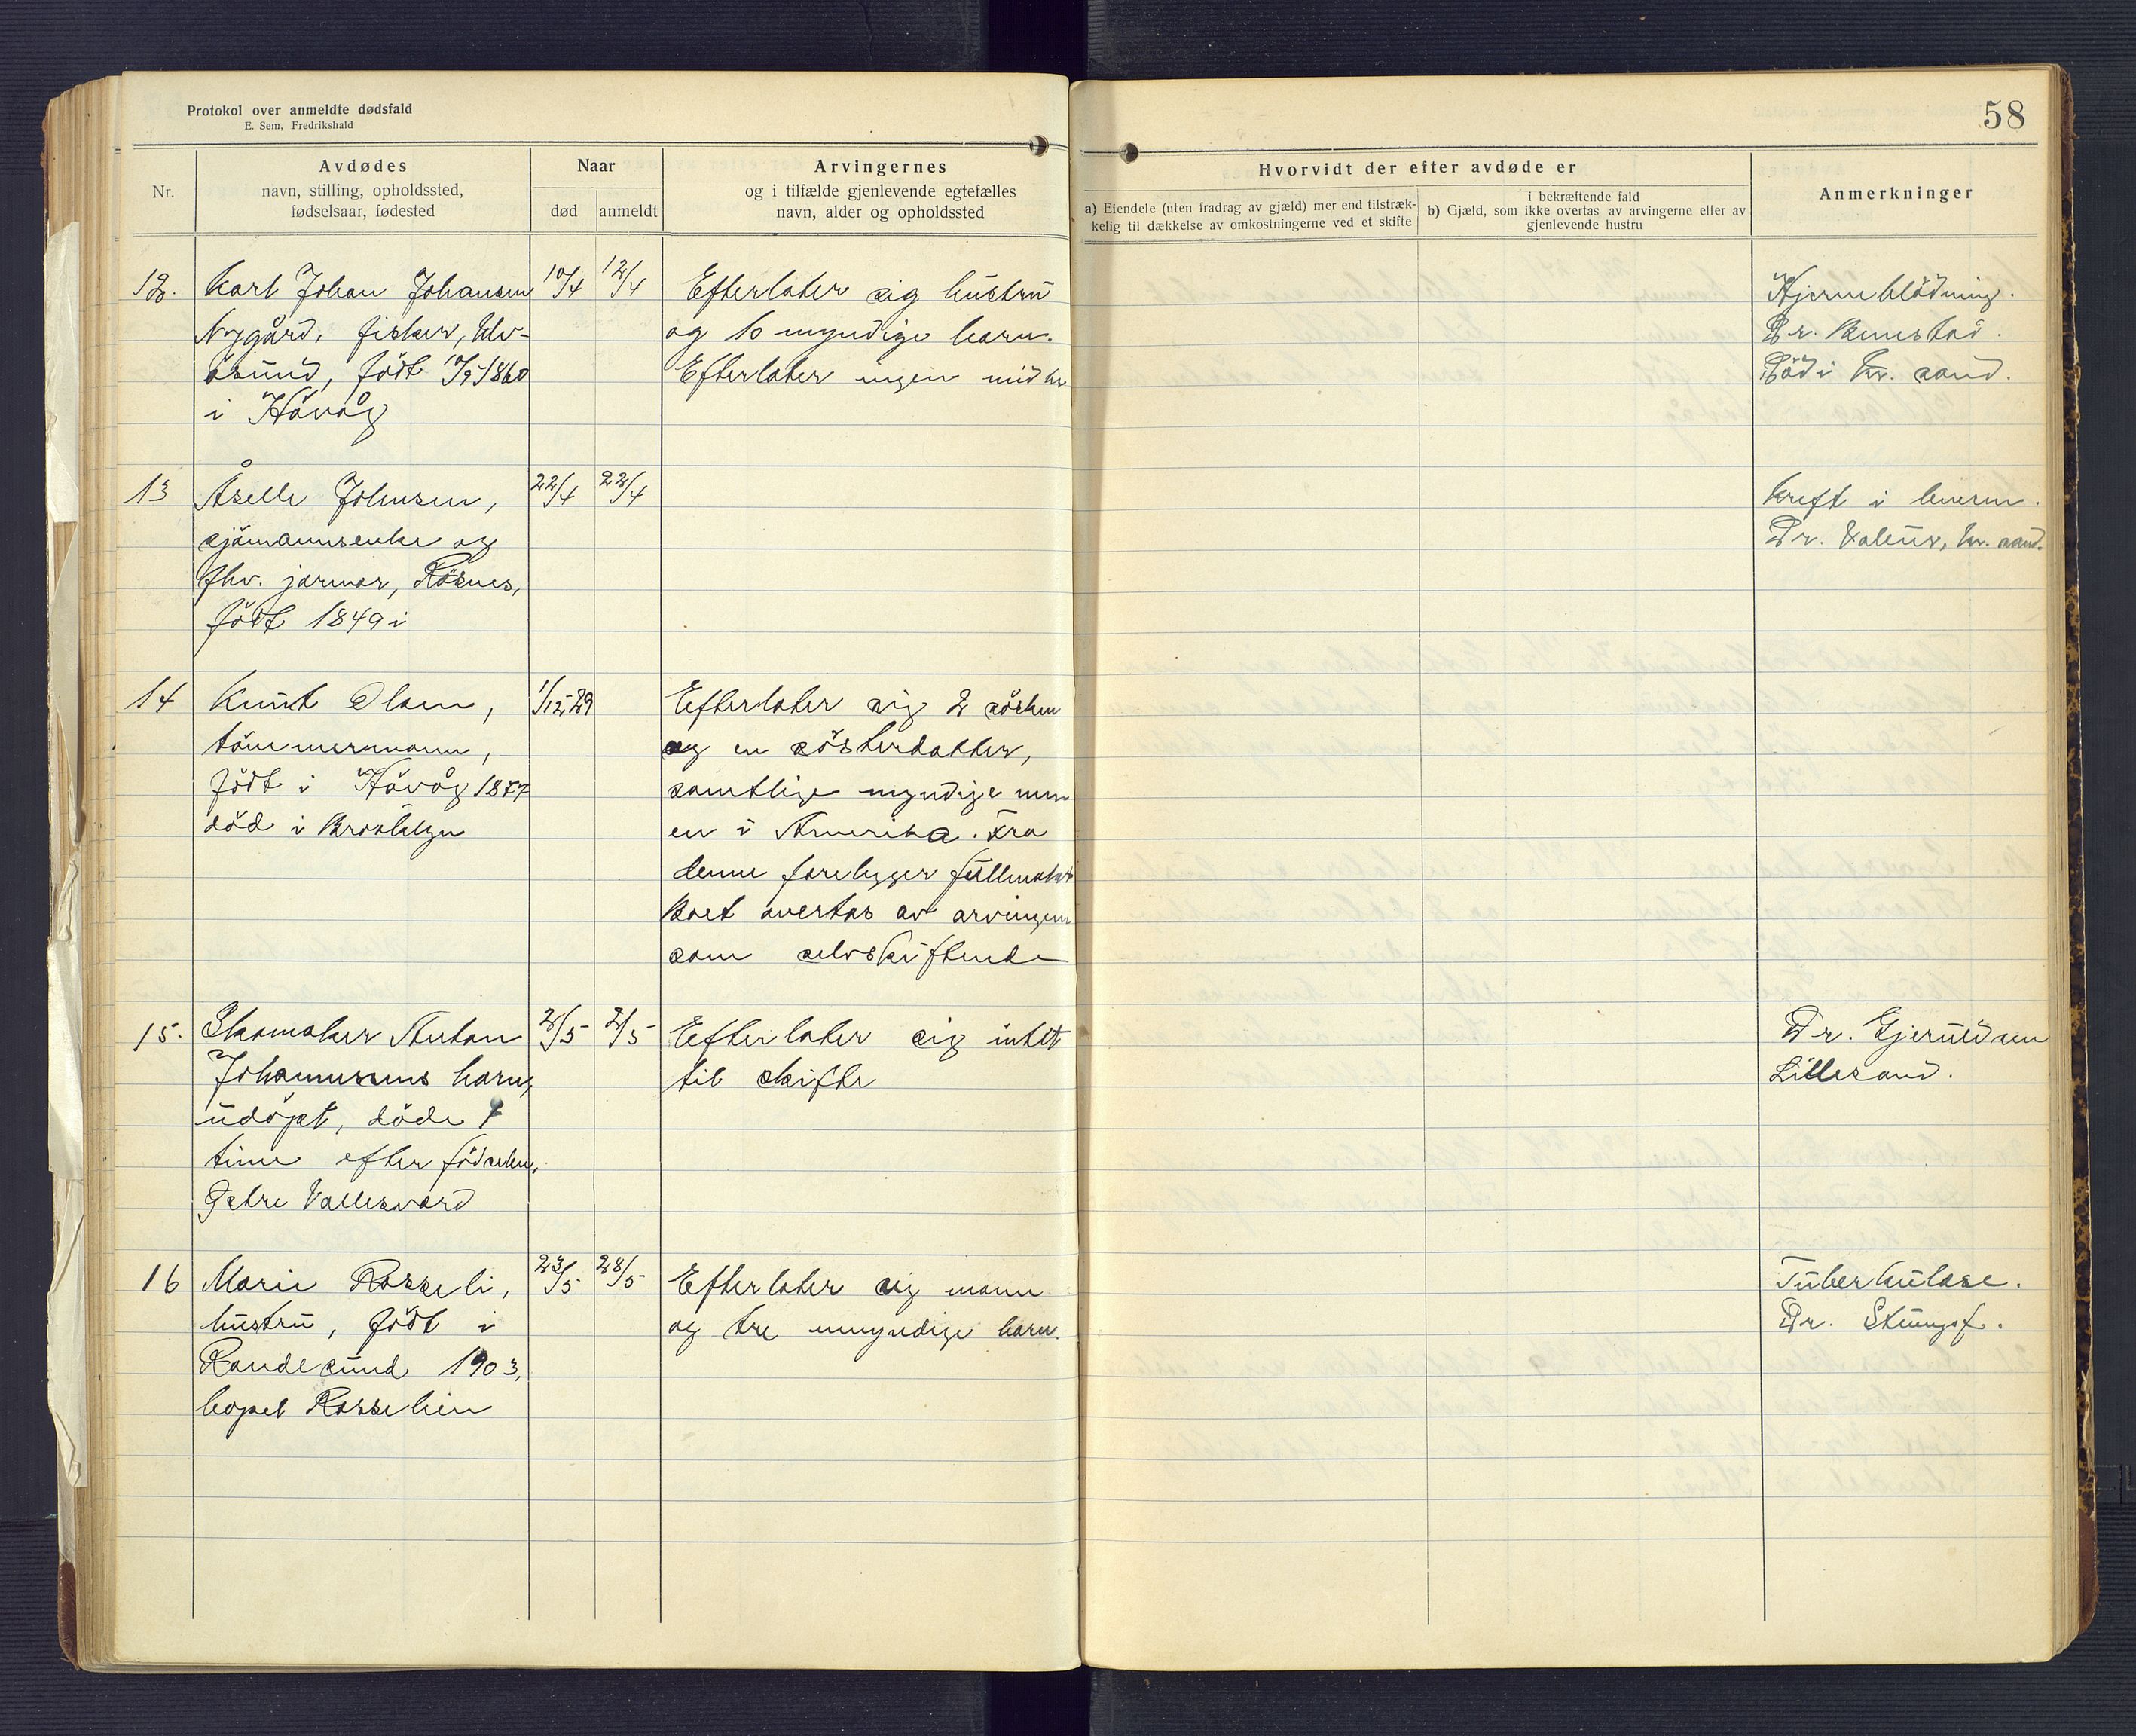 Protokol over anmeldte dødsfald
E. Sem, Fredrikshald
58
Nr.
Avdødes
navn, stilling, opholdssted,
fødselsaar, fødested
Naar
død
anmeldt
Arvingernes
og i tilfælde gjenlevende egtefælles
navn, alder og opholdssted
Hvorvidt der efter avdøde er
a) Eiendele (uten fradrag av gjæld) mer end tilstræk-
kelig til dækkelse av omkostningerne ved et skifte
i bekræftende fald
b) Gjæld, som ikke overtas av arvingerne eller av
gjenlevende hustru
Anmerkninger
12.
Karl Johan Johansen
Nygård, fisker, Ulv-
øsund, födt 10/5-1860
i Hövåg
10/4
12/4
Efterlater sig hustru
og 10 myndige barn.
Efterlater ingen midler
Hjerneblödning.
Dr.
Död i Kr. sand.
13
Åselle Johnsen,
sjömannsenke og
fhv. jormor, Rösnes,
födt 1849 i
22/4
22/4
Kreft i
Dr. Valeur, Kr. sand.
14
Knut Olsen,
tömmermann,
födt i Hövåg 1877
död i Brooklyn
1/12-29
Efterlater sig 2 sösken
og en sösterdatter,
samtlige myndige men
en i Amerika. Fra
denne foreligger fullmakt
Boet overtas av arvingene
som selvskiftende
15.
Skomaker Anton
Johannesens barn,
udöpt, döde 1
time efter födselen,
Östre Vallesverd
2/5
2/5
Efterlater sig intet
til skifte
Dr. Gjeruldsen
Lillesand.
16
Marie Rosseli,
hustru, födt i
Randesund 1903,
bopel Rosselien
23/5
28/5
Efterlater sig mann
og tre umyndige barn.
Tuberkulose.
Dr. Stumpf.